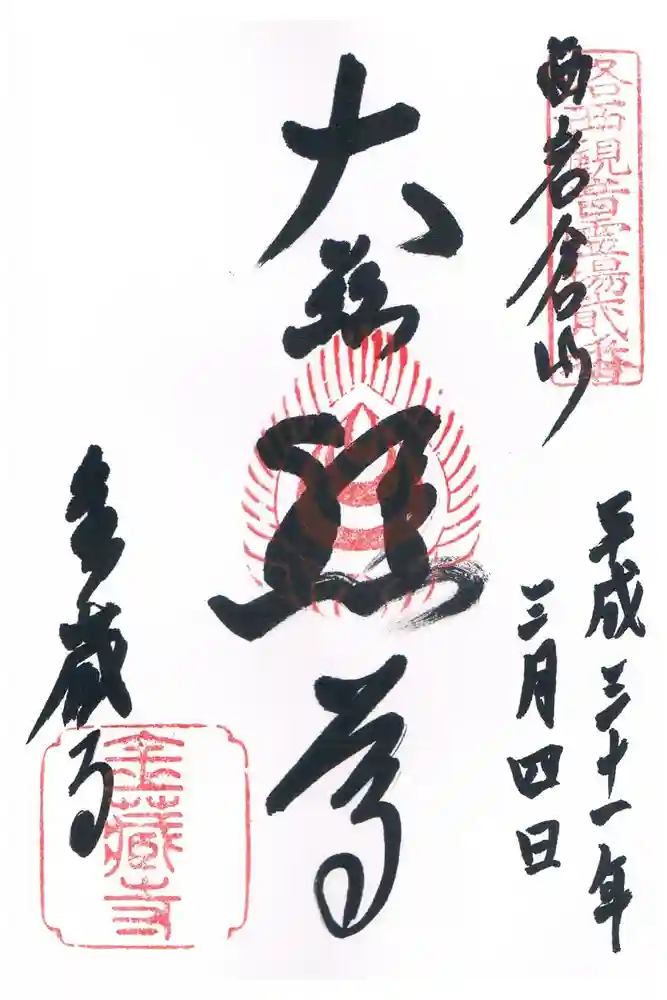 西岩倉山
洛西観音霊場貳番
平成三十一年
三月四日
大慈悲尊
金蔵寺
金蔵寺